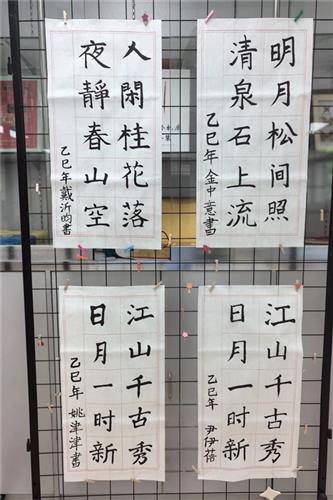 人閑桂花落
夜靜春山空
乙巳年戴沂昀書
明月松间照
清泉石上流
乙巳年金中意書
江山千古秀
日月一时新
乙巳年姚津津書
江山千古秀
日月一时新
乙巳年尹伊蓓